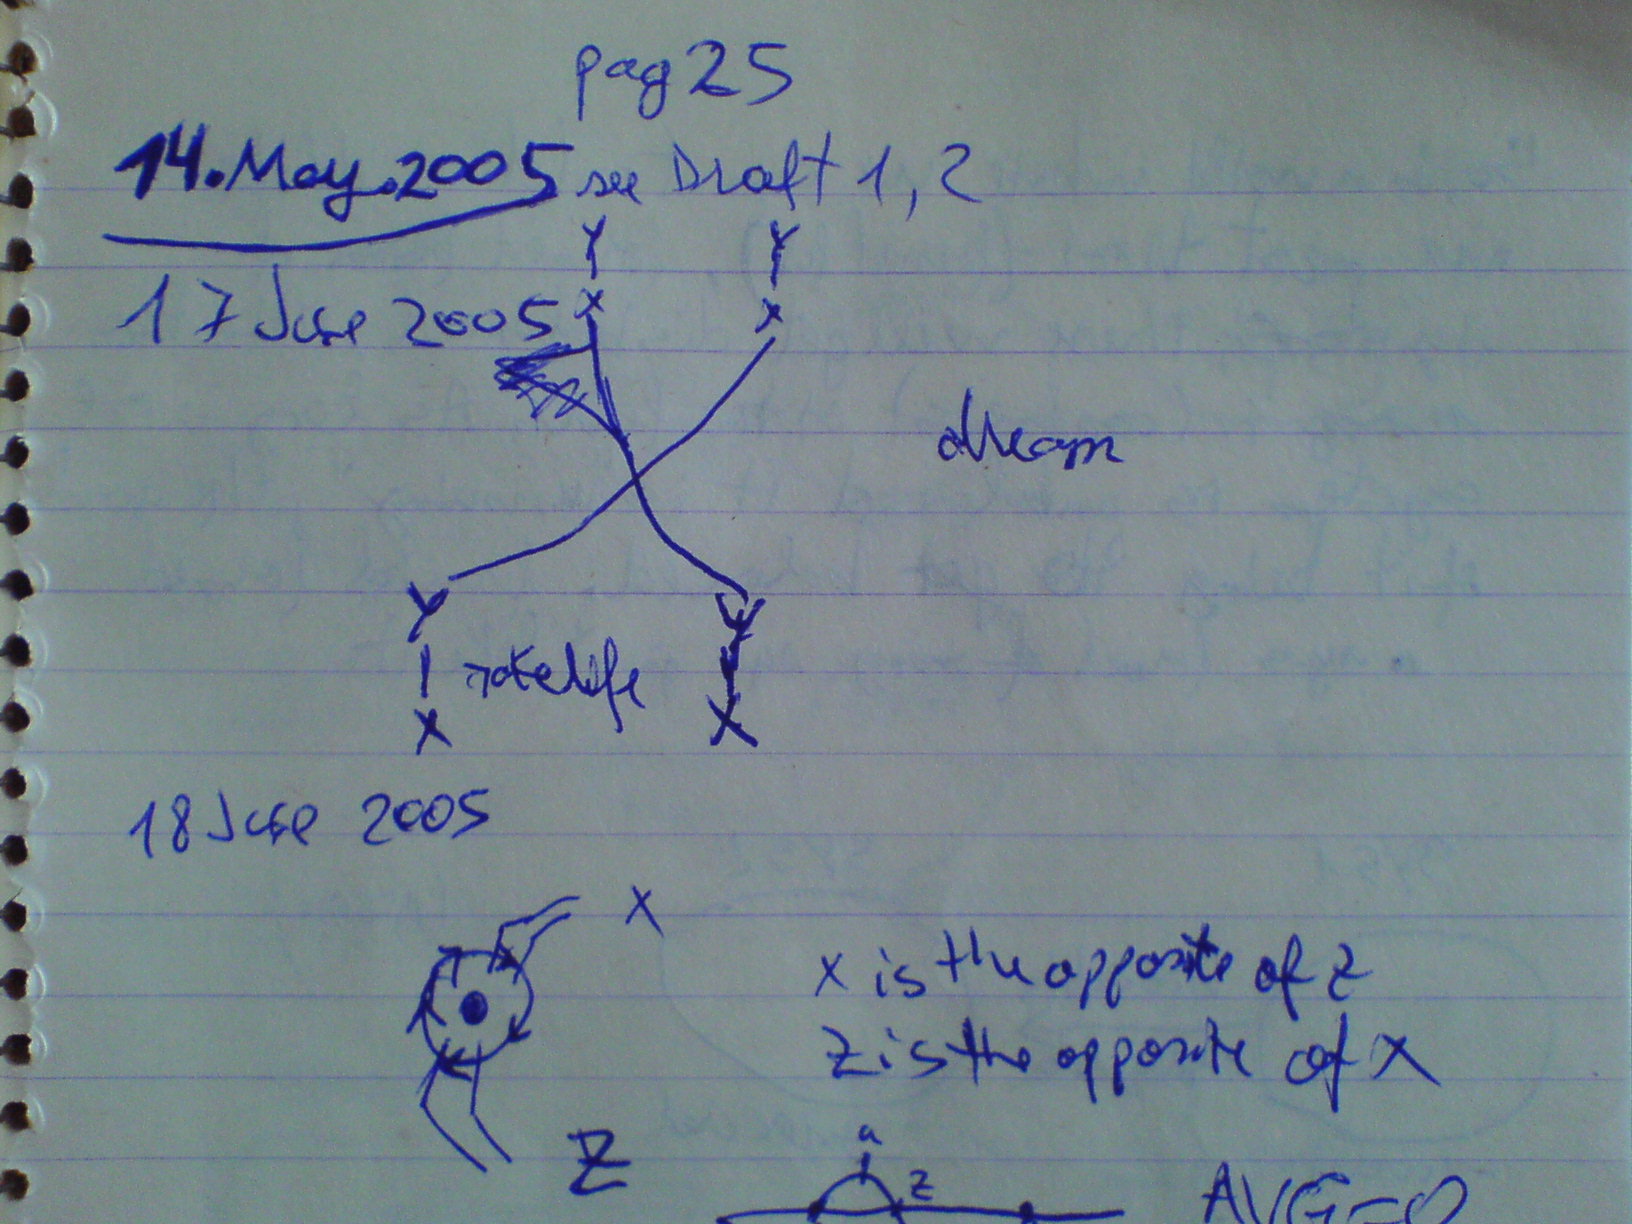 pag 25
14. May. 2005 see Draft 1, 2
Y Y
17 June 2005 x x
dream
Y Y
life
X X
18 June 2005
X
x is the opposite of z
z is the opposite of x
Z
a
z